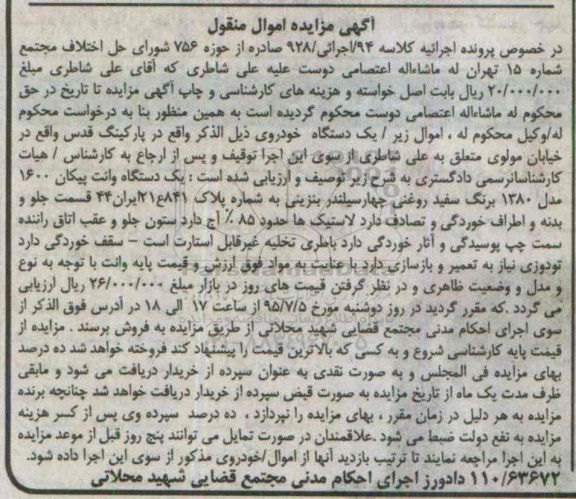 آگهی مزایده اموال منقول
در خصوص پرونده اجرائیه کلاسه ۹۴/اجرائی/۹۲۸ صادره از حوزه ۷۵۶ شورای حل اختلاف مجتمع
شماره ۱۵ تهران له ماشااله اعتصامی دوست علیه علی شاطری که آقای علی شاطری مبلغ
۲۰/۰۰۰/۰۰۰ ریال بابت اصل خواسته و هزینه های کارشناسی و چاپ آگهی مزایده تا تاریخ در حق
محکوم له ماشااله اعتصامی دوست محکوم گردیده است به همین منظور بنا به درخواست محکوم
له/وکیل محکوم له ، اموال زیر / یک دستگاه خودروی ذیل الذکر واقع در پارکینگ قدس واقع در
خیابان مولوی متعلق به علی شاطری از سوی این اجرا توقیف و پس از ارجاع به کارشناس / هیات
کارشناسانرسمی دادگستری به شرح زیر توصیف و ارزیابی شده است : یک دستگاه وانت پیکان ۱۶۰۰
مدل ۱۳۸۰ برنگ سفید روغنی چهارسیلندر بنزینی به شماره پلاک ۸۴۱ع۲۱ایران۴۴ قسمت جلو و
بدنه و اطراف خوردگی و تصادف دارد لاستیک ها حدود ۸۵ ٪ آج دارد ستون جلو و عقب اتاق راننده
سمت چپ پوسیدگی و آثار خوردگی دارد باطری تخلیه غیرقابل استارت است – سقف خوردگی دارد
تودوزی نیاز به تعمیر و بازسازی دارد با عنایت به مواد فوق ارزش و قیمت پایه وانت با توجه به نوع
و مدل و وضعیت ظاهری و در نظر گرفتن قیمت های روز در بازار مبلغ ۲۶/۰۰۰/۰۰۰ ریال ارزیابی
می گردد .که مقرر گردید در روز دوشنبه مورخ ۹۵/۷/۵ از ساعت ۱۷ الی ۱۸ در آدرس فوق الذکر از
سوی اجرای احکام مدنی مجتمع قضایی شهید محلاتی از طریق مزایده به فروش برسند . مزایده از
قیمت پایه کارشناسی شروع و به کسی که بالاترین قیمت را پیشنهاد کند فروخته خواهد شد ده درصد
بهای مزایده فی المجلس و به صورت نقدی به عنوان سپرده از خریدار دریافت می شود و مابقی
ظرف مدت یک ماه از تاریخ مزایده به صورت قبض سپرده از خریدار دریافت خواهد شد چنانچه برنده
مزایده به هر دلیل در زمان مقرر ، بهای مزایده را نپردازد ، ده درصد سپرده وی پس از کسر هزینه
مزایده به نفع دولت ضبط می شود .علاقمندان در صورت تمایل می توانند پنج روز قبل از موعد مزایده
به این اجرا مراجعه نمایند تا ترتیب بازدید آنها از اموال/خودروی مذکور از سوی این اجرا داده شود.
۱۱۰/۶۳۶۷۲ دادورز اجرای احکام مدنی مجتمع قضایی شهید محلاتی